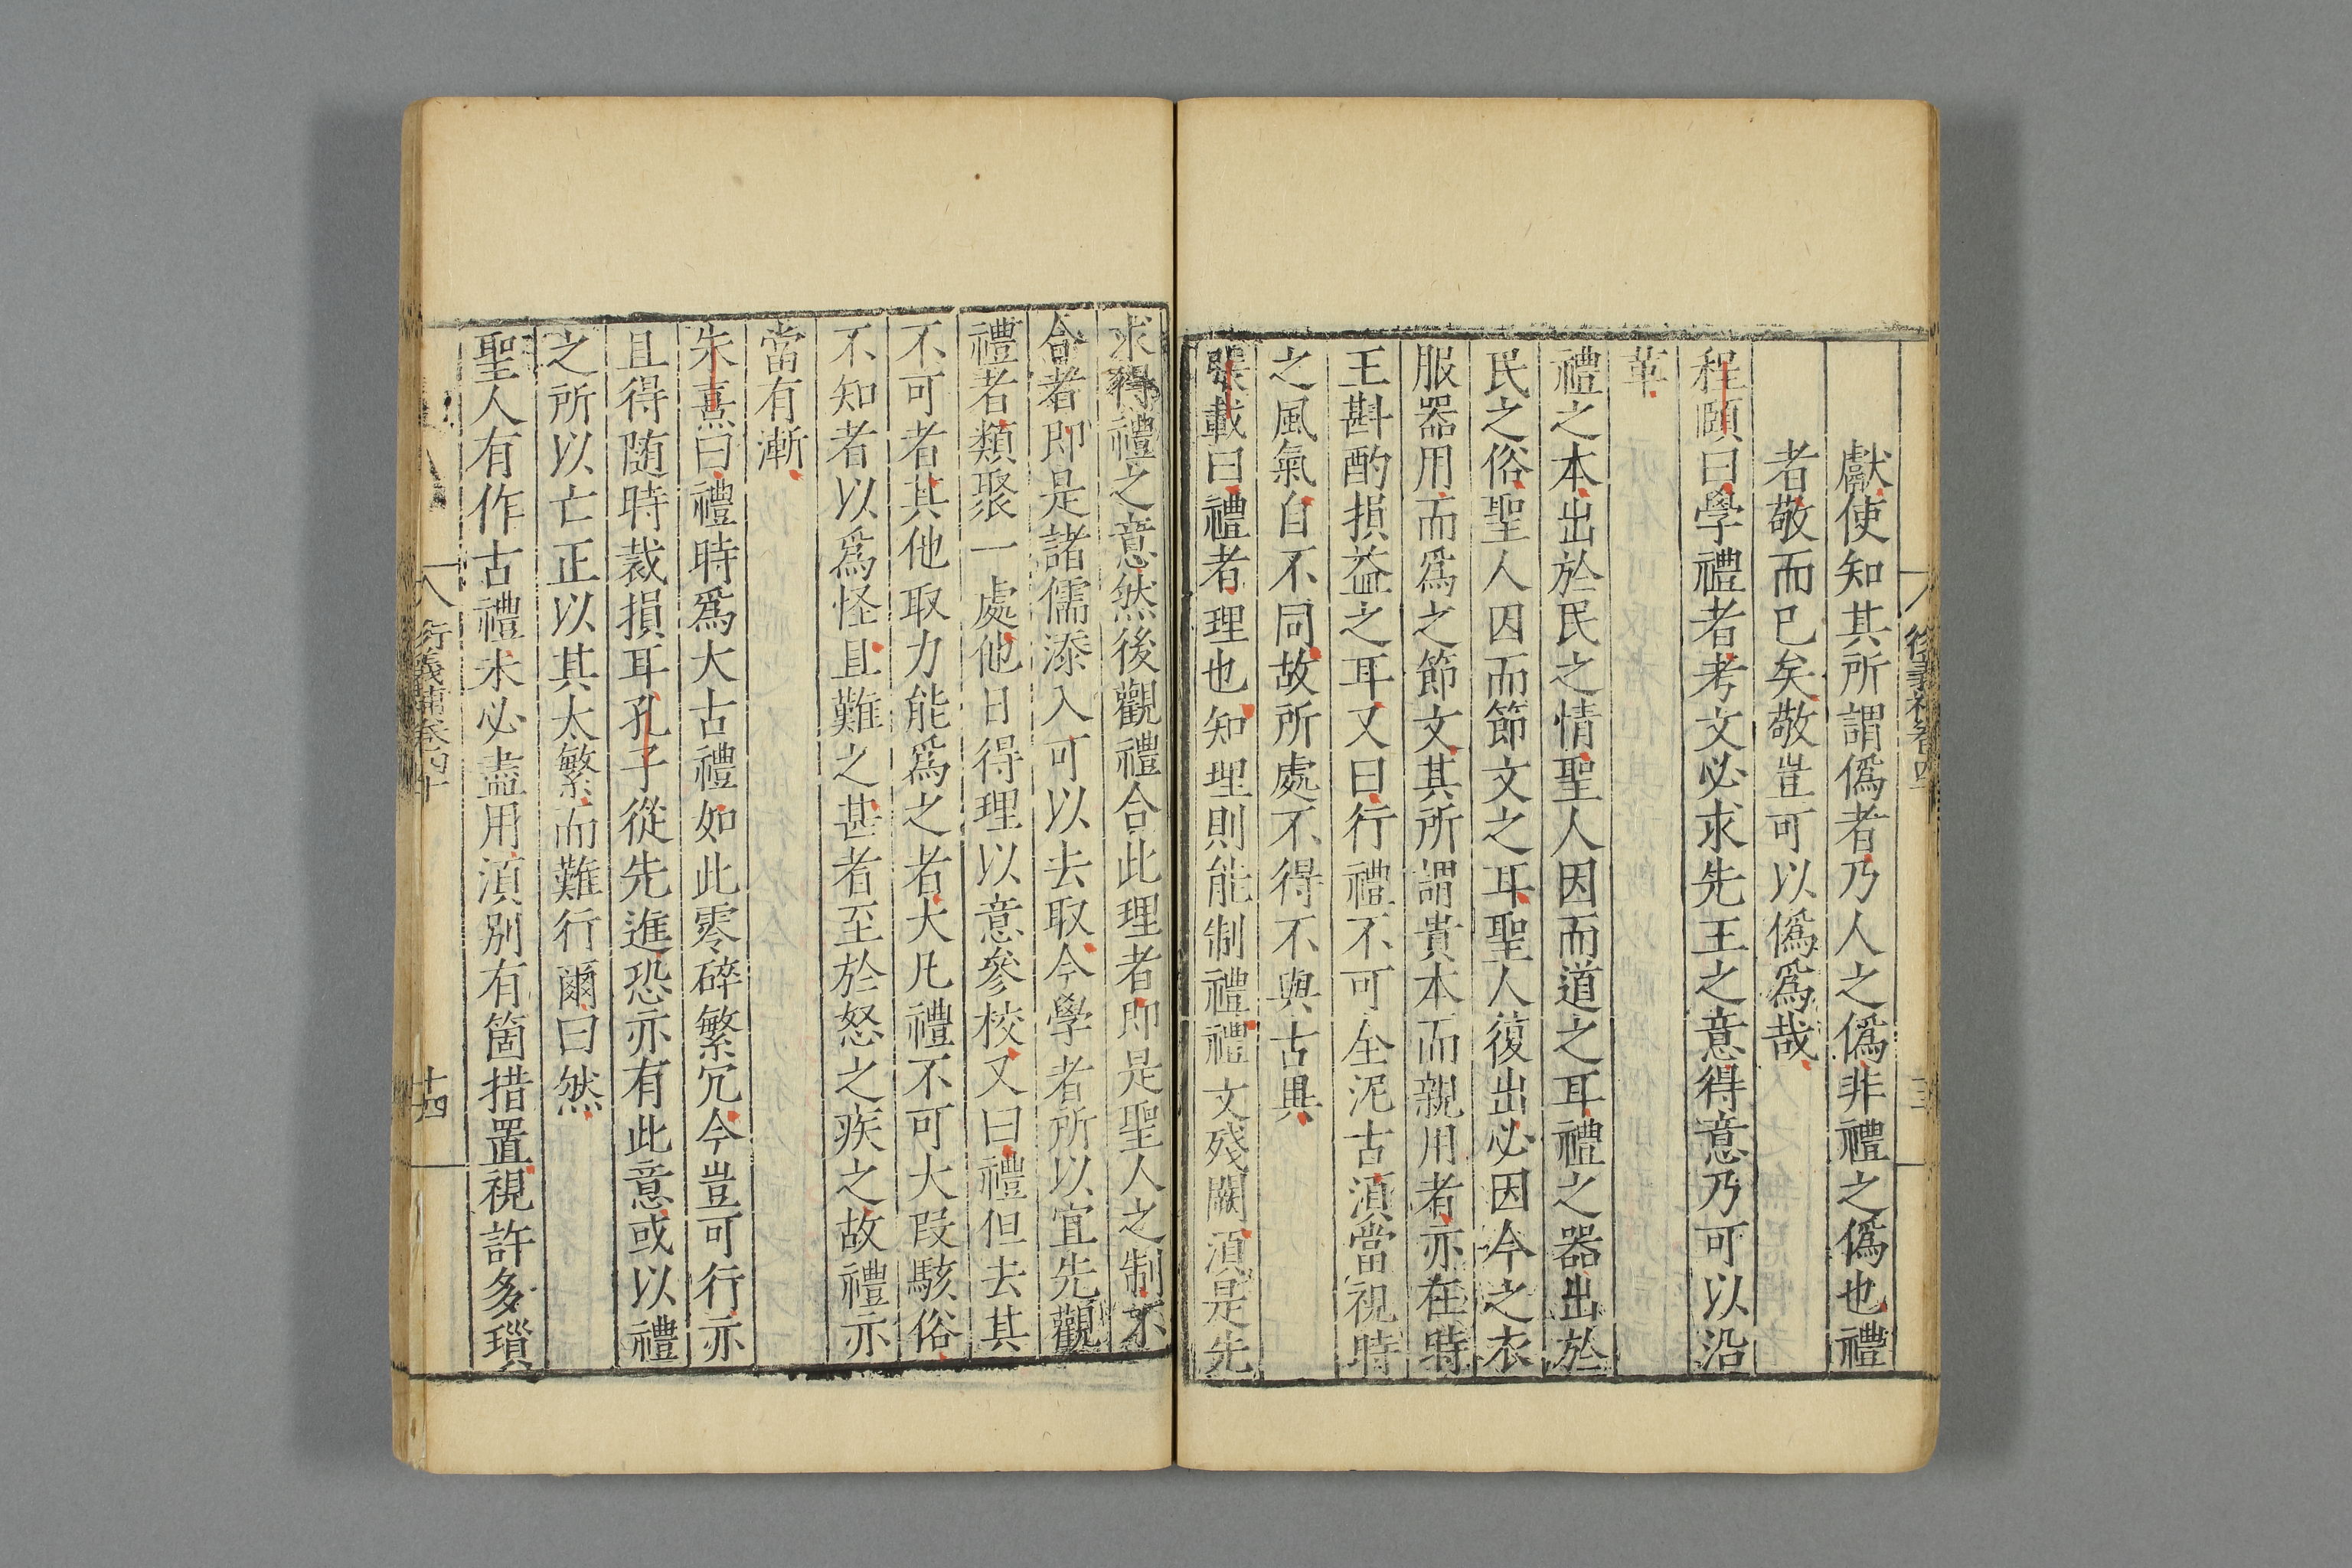 獻使知其所謂僞者乃人之僞非禮之僞也禮
者敬而已矣敬豈可以僞爲哉
程頤曰學禮者考文必求先王之意得意乃可以沿
革
禮之本出於民之情聖人因而道之耳禮之器出於
民之俗聖人因而節文之耳聖人復出必因今之衣
服器用而爲之節文其所謂貴本而親用者亦在時
王斟酌損益之耳又曰行禮不可全泥古湏當視時
之風氣自不同故所處不得不與古異
張載曰禮者理也知理則能制禮禮文殘闕湏是先
求得禮之意然後觀禮合此理者即是聖人之制不
合者即是諸儒添入可以去取今學者所以宜先觀
禮者類聚一處他日得理以意參校又曰禮但去其
不可者其他取力能爲之者大凡禮不可大叚駭俗
不知者以爲怪且難之甚者至於怒之疾之故禮亦
當有漸
朱熹曰禮時爲大古禮如此零碎繁冗今豈可行亦
且得随時裁損耳孔子從先進恐亦有此意或以禮
之所以亡正以其太繁而難行爾曰然
聖人有作古禮未必盡用湏别有箇措置視許多瑣
衍義補卷四十
十四